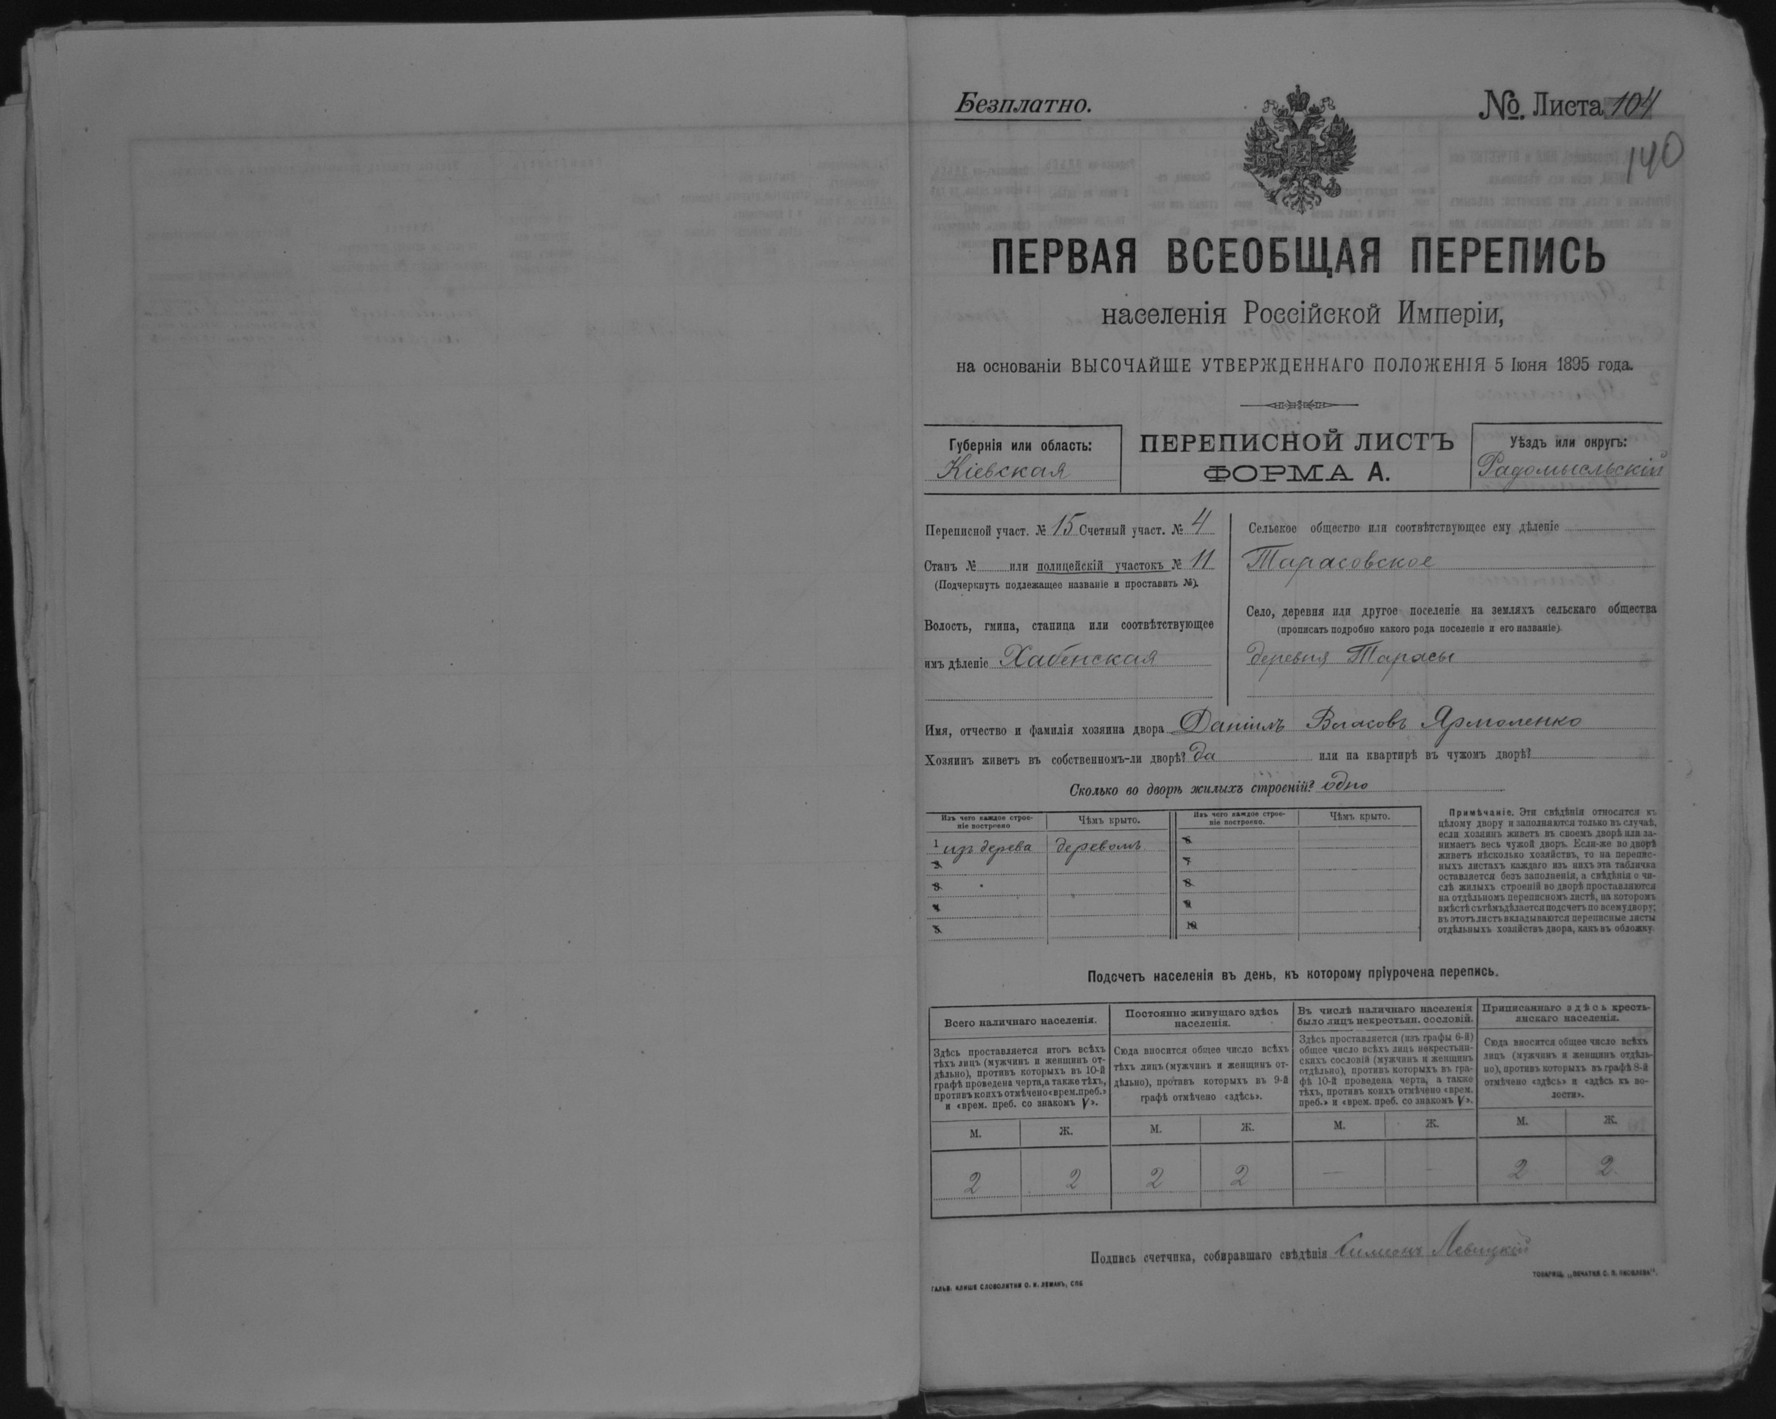 Безплатно.
№. Листа 104
140
ПЕРВАЯ ВСЕОБЩАЯ ПЕРЕПИСЬ
населенія Россійской Имперіи,
на основаніи ВЫСОЧАЙШЕ УТВЕРЖДЕННАГО ПОЛОЖЕНІЯ 5 Іюня 1895 года.
Губернія или область:
Кіевская
ПЕРЕПИСНОЙ ЛИСТЪ
ФОРМА А.
Уѣздъ или округъ:
Радомысльскій
Переписной участ. № 15 Счетный участ. № 4
Станъ № или полицейскій участокъ № 11
(Подчеркнуть подлежащее названіе и проставить №).
Волость, гмина, станица или соотвѣтствующее
имъ дѣленіе Хабенская
Сельское общество или соотвѣтствующее ему дѣленіе
Тарасовское
Село, деревня или другое поселеніе на земляхъ сельскаго общества
(прописать подробно какого рода поселеніе и его названіе).
деревня Тарасы
Имя, отчество и фамилія хозяина двора Даніилъ Власовъ Ярмоленко
Хозяинъ живетъ въ собственномъ-ли дворѣ? да или на квартирѣ въ чужомъ дворѣ?
Сколько во дворѣ жилыхъ строеній? одно
Изъ чего каждое строе-
ніе построено
Чѣмъ крыто.
1 изъ дерева деревомъ
2
3
4
5
Изъ чего каждое строе-
ніе построено.
Чѣмъ крыто.
6
7
8
9
10
Примѣчаніе. Эти свѣдѣнія относятся къ
цѣлому двору и заполняются только въ случаѣ,
если хозяинъ живетъ въ своемъ дворѣ или за-
нимаетъ весь чужой дворъ. Если-же во дворѣ
живетъ нѣсколько хозяйствъ, то на перепис-
ныхъ листахъ каждаго изъ нихъ эта табличка
оставляется безъ заполненія, а свѣдѣнія о чи-
слѣ жилыхъ строеній во дворѣ проставляются
на отдѣльномъ переписномъ листѣ, на которомъ
вмѣстѣ съ тѣмъ дѣлается подсчетъ по всему двору;
въ этотъ листъ вкладываются переписные листы
отдѣльныхъ хозяйствъ двора, какъ въ обложку.
Подсчетъ населенія въ день, къ которому пріурочена перепись.
Всего наличнаго населенія.
Здѣсь проставляется итогъ всѣхъ
тѣхъ лицъ (мужчинъ и женщинъ от-
дѣльно), противъ которыхъ въ 10-й
графѣ проведена черта, а также тѣхъ,
противъ коихъ отмѣчено «врем. преб.»
и «врем. преб. со знакомъ V».
Постоянно живущаго здѣсь
населенія.
Сюда вносится общее число всѣхъ
тѣхъ лицъ (мужчинъ и женщинъ от-
дѣльно), противъ которыхъ въ 9-й
графѣ отмѣчено «здѣсь».
Въ числѣ наличнаго населенія
было лицъ некрестьян. сословій.
Здѣсь проставляется (изъ графы 6-й)
общее число всѣхъ лицъ некрестьян-
скихъ сословій (мужчинъ и женщинъ
отдѣльно), противъ которыхъ въ гра-
фѣ 10-й проведена черта, а также
тѣхъ, противъ коихъ отмѣчено «врем.
преб.» и «врем. преб. со знакомъ V».
Приписаннаго здѣсь кресть-
янскаго населенія.
Сюда вносится общее число всѣхъ
лицъ (мужчинъ и женщинъ отдѣль-
но), противъ которыхъ въ графѣ 8-й
отмѣчено «здѣсь» и «здѣсь къ во-
лости».
М. Ж. М. Ж. М. Ж. М. Ж.
2 2 2 2 — - 2 2
Подпись счетчика, собиравшаго свѣдѣнія Симеонъ Левицкій
ГАЛЬВ. КЛИШЕ СЛОВОЛИТНИ О. И. ЛЕМАНЪ, СПБ
ТОВАРИЩ. „ПЕЧАТНЯ С. П. ЯКОВЛЕВА".